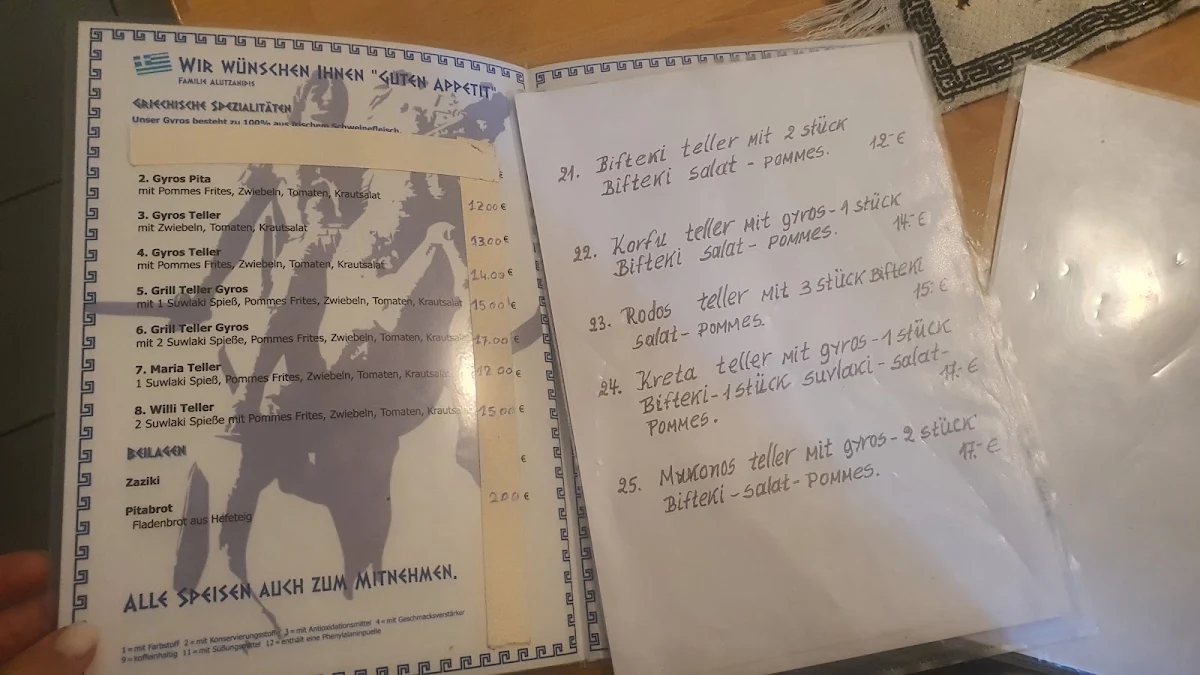 WIR WÜNSCHEN IHNEN "GUTEN APPETIT"
FAMILIE ALUTZANIDIS
GRIECHISCHE SPEZIALITÄTEN
Unser Gyros besteht zu 100% aus frischem Schweinefleisch.
€
2. Gyros Pita
mit Pommes Frites, Zwiebeln, Tomaten, Krautsalat 12.00 €
3. Gyros Teller
mit Zwiebeln, Tomaten, Krautsalat 13.00 €
4. Gyros Teller
mit Pommes Frites, Zwiebeln, Tomaten, Krautsalat 14.00 €
5. Grill Teller Gyros
mit 1 Suwlaki Spieß, Pommes Frites, Zwiebeln, Tomaten, Krautsalat 15.00 €
6. Grill Teller Gyros
mit 2 Suwlaki Spieße, Pommes Frites, Zwiebeln, Tomaten, Krautsalat 17.00 €
7. Maria Teller
1 Suwlaki Spieß, Pommes Frites, Zwiebeln, Tomaten, Krautsalat 12.00 €
8. Willi Teller
2 Suwlaki Spieße mit Pommes Frites, Zwiebeln, Tomaten, Krautsalat 15.00 €
BEILAGEN
Zaziki €
Pitabrot 2.00 €
Fladenbrot aus Hefeteig
ALLE SPEISEN AUCH ZUM MITNEHMEN.
1 = mit Farbstoff 2 = mit Konservierungsstoffe 3 = mit Antioxidationsmittel 4 = mit Geschmacksverstärker
9 = koffeinhaltig 11 = mit Süßungsmittel 12 = enthält eine Phenylalaninquelle
21. Bifteki teller mit 2 stück
Bifteki salat - POMMES. 12.- €
22. Korfu teller mit gyros - 1 stück
Bifteki salat - POMMES. 14.- €
23. Rodos teller mit 3 stück Bifteki
salat - POMMES. 15.- €
24. Kreta teller mit gyros - 1 stück
Bifteki - 1 stück suvlaki - salat -
POMMES. 17.- €
25. Mykonos teller mit gyros - 2 stück
Bifteki - salat - POMMES. 17.- €